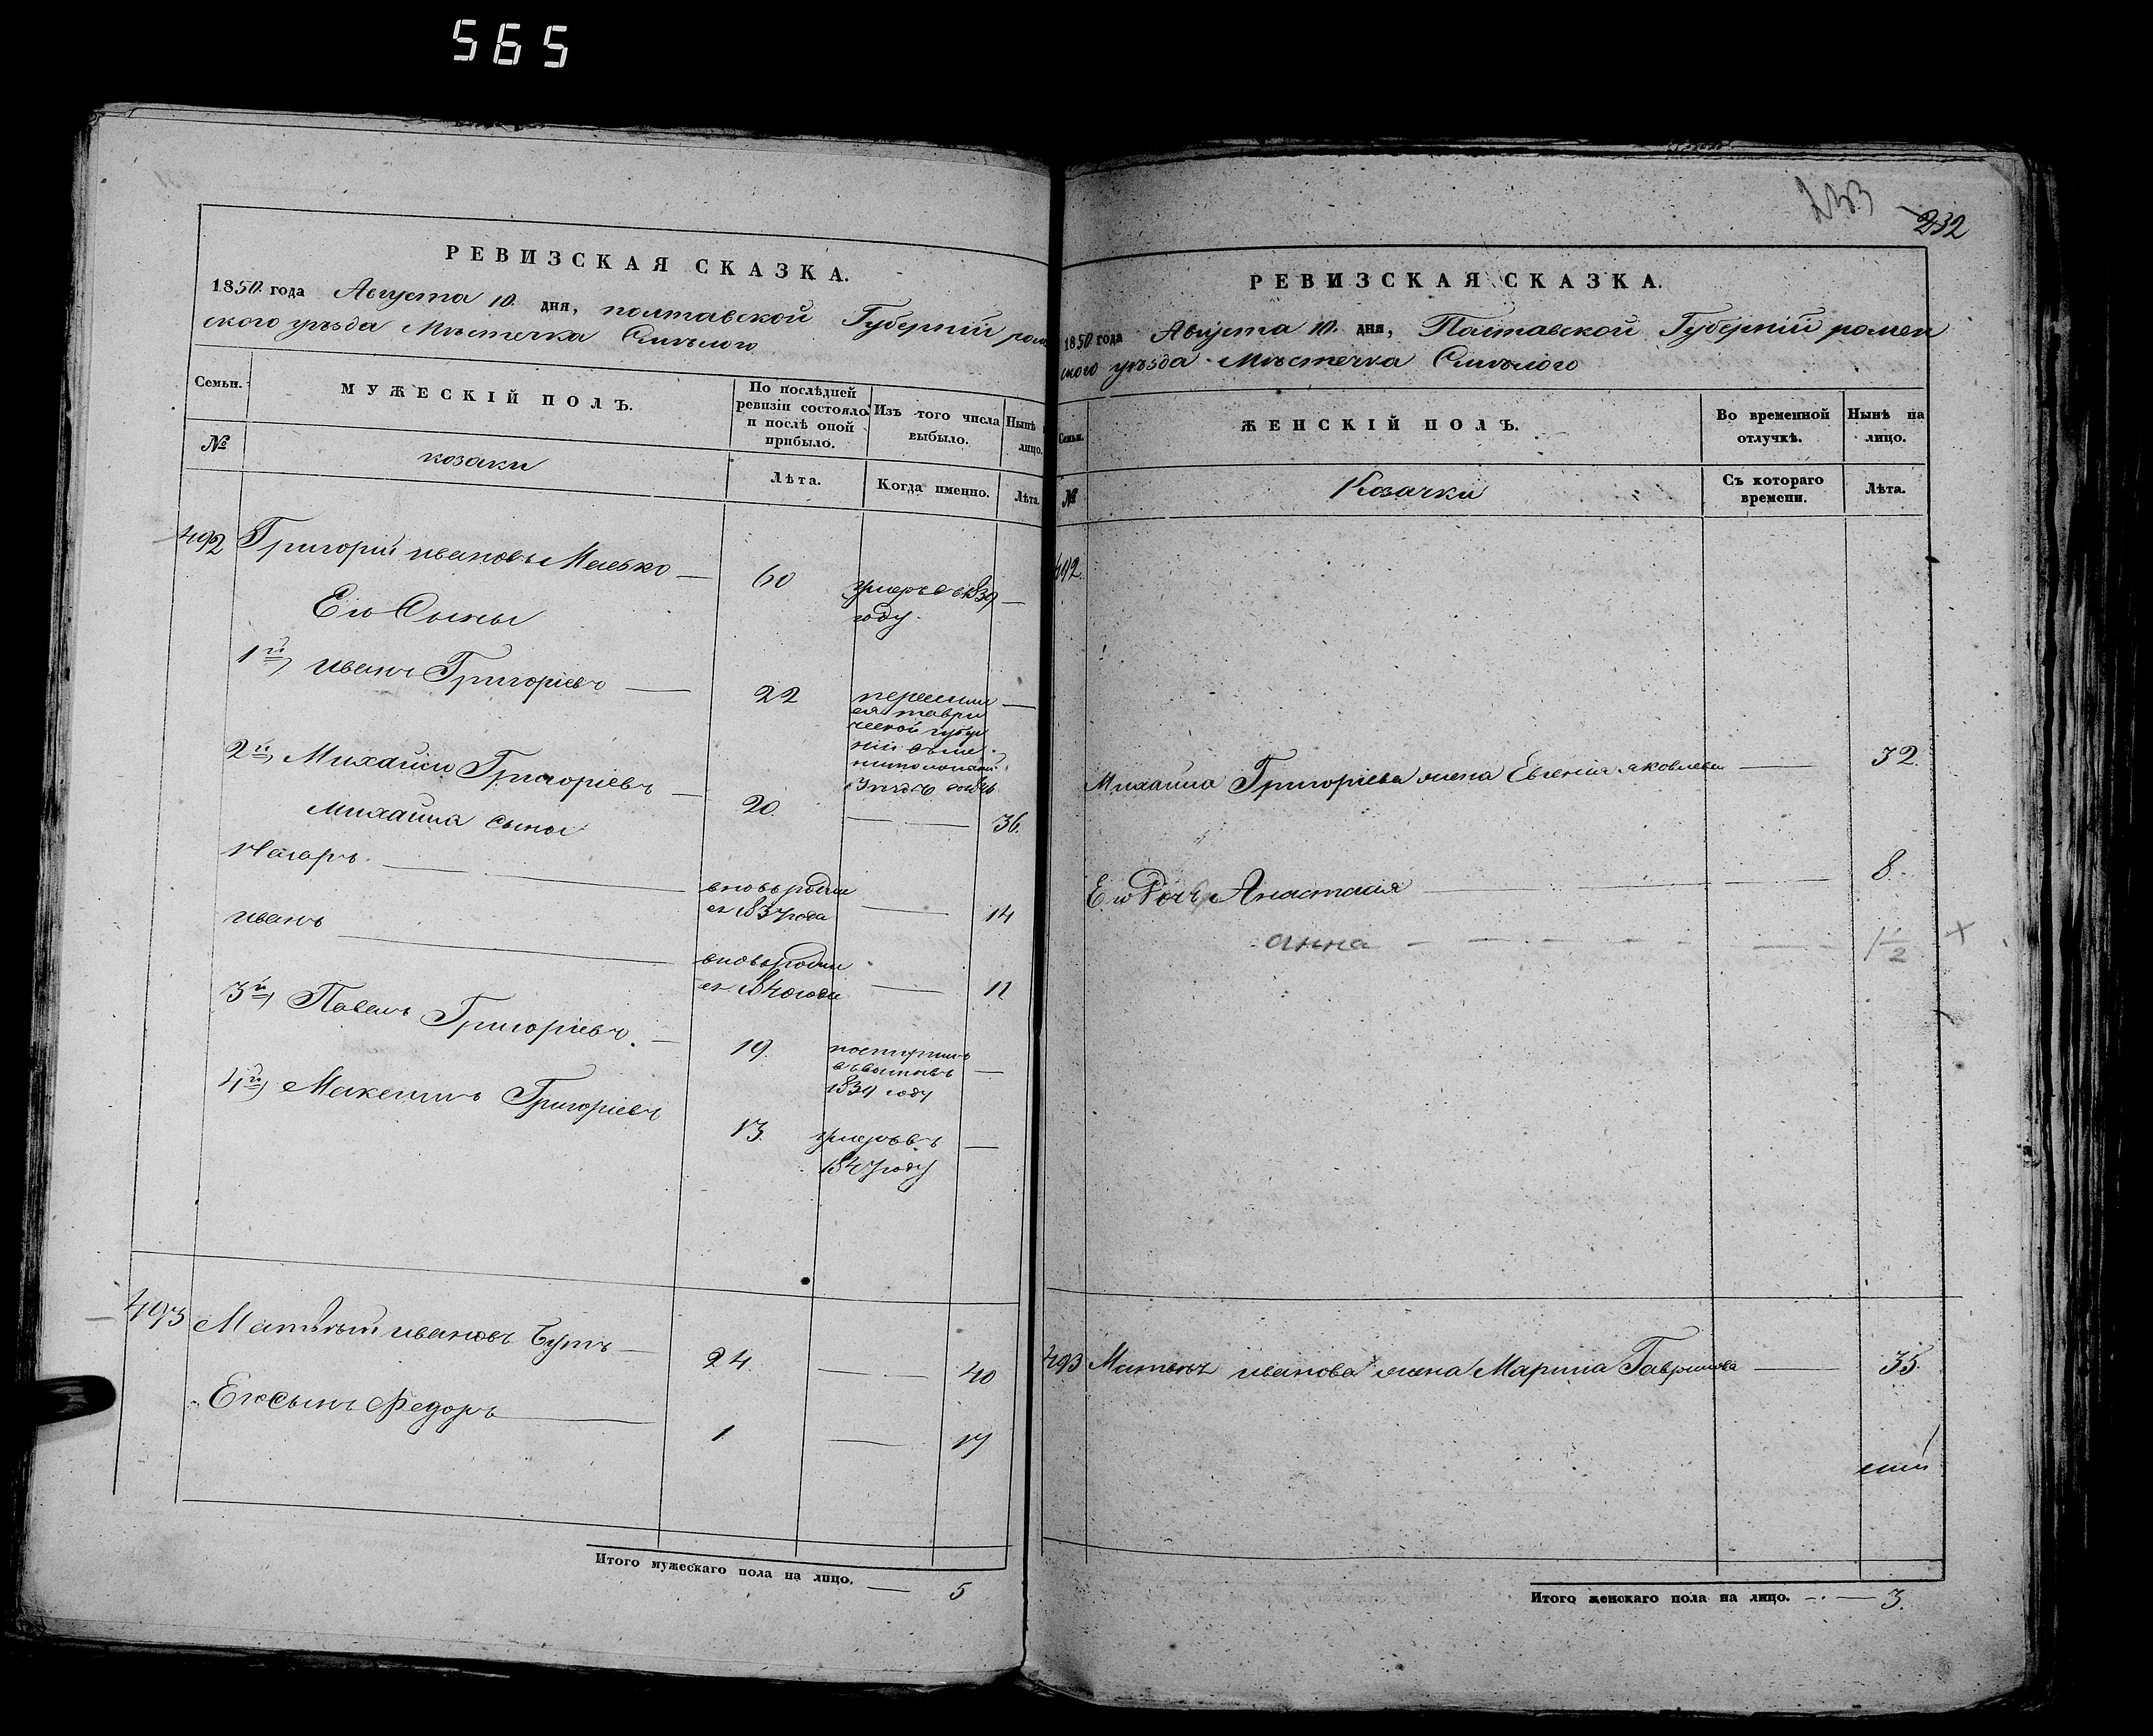 565
РЕВИЗСКАЯ СКАЗКА.
1850 года Августа 10. дня, полтавской Губерніи ромен
ского уѣзда Мѣстечка Смѣлого
Семьи.
МУЖЕСКІЙ ПОЛЪ.
По послѣдней ревизіи состояло и послѣ оной прибыло.
Изъ того числа выбыло.
Нынѣ лицо.
№
козаки
Лѣта.
Когда именно.
Лѣта.
492 Григорій ивановъ — 60 умеръ въ 1839 —
году.
Его Сыны
1й, иванъ Григоріевъ — 22 —
таври
ческой губер
ніи
2й, Михайло Григоріевъ — 20. — — 36.
Михайла сыны
— вновь родил
ся 1837 года — 14
иванъ — вновь родил
ся 1840 года — 11
3й, Павелъ Григоріевъ. — 19. —
1839 году
4й, Григоріевъ 13. умеръ въ —
1847 году
493 Матвій ивановъ — 24 — 40
Его сынъ Федоръ — 1 — 17
Итого мужескаго пола на лицо. — 5
233 232
РЕВИЗСКАЯ СКАЗКА.
1850 года Августа 10. дня, Полтавской Губерніи ромен
ского уѣзда Мѣстечка Смѣлого
Семьи.
ЖЕНСКІЙ ПОЛЪ.
Во временной отлучкѣ.
Нынѣ на лицо.
№
Козачки
Съ котораго времени.
Лѣта.
492.
Михайла Григоріева жена Евгенія яковлева — 32.
Его дочь Анастасія — — 8.
анна — — — — 1½ +
493 иванова жена Марина Гаврилова — 35.
Итого женскаго пола на лицо. — 3.